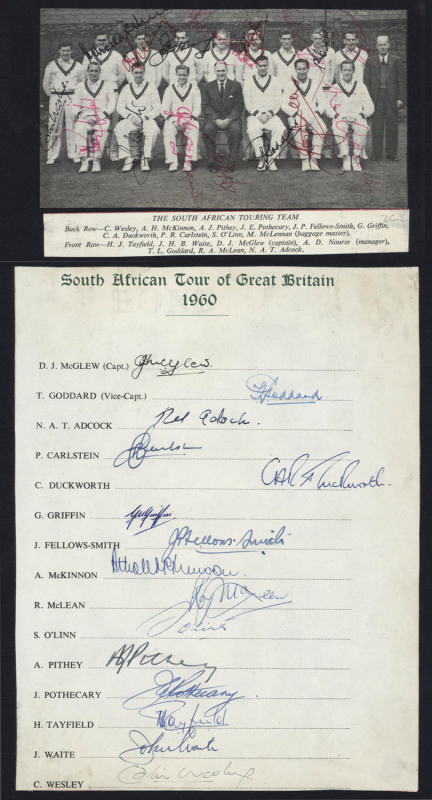 THE SOUTH AFRICAN TOURING TEAM
Back Row—C. Wesley, A. H. McKinnon, A. J. Pithey, J. E. Pothecary, J. P. Fellows-Smith, G. Griffin,
C. A. Duckworth, P. R. Carlstein, S. O'Linn, M. McLennan (baggage master).
Front Row—H. J. Tayfield, J. H. B. Waite, D. J. McGlew (captain), A. D. Nourse (manager),
T. L. Goddard, R. A. McLean, N. A. T. Adcock.
South African Tour of Great Britain
1960
D. J. McGLEW (Capt.) McGlew
T. GODDARD (Vice-Capt.) T Goddard
N. A. T. ADCOCK Adcock
P. CARLSTEIN Carlstein
C. DUCKWORTH CAR Duckworth
G. GRIFFIN Griffin
J. FELLOWS-SMITH JP Fellows-Smith
A. McKINNON Atholl McKinnon
R. McLEAN Roy McLean
S. O'LINN O'Linn
A. PITHEY AJ Pithey
J. POTHECARY J Pothecary
H. TAYFIELD Tayfield
J. WAITE John Waite
C. WESLEY Colin Wesley